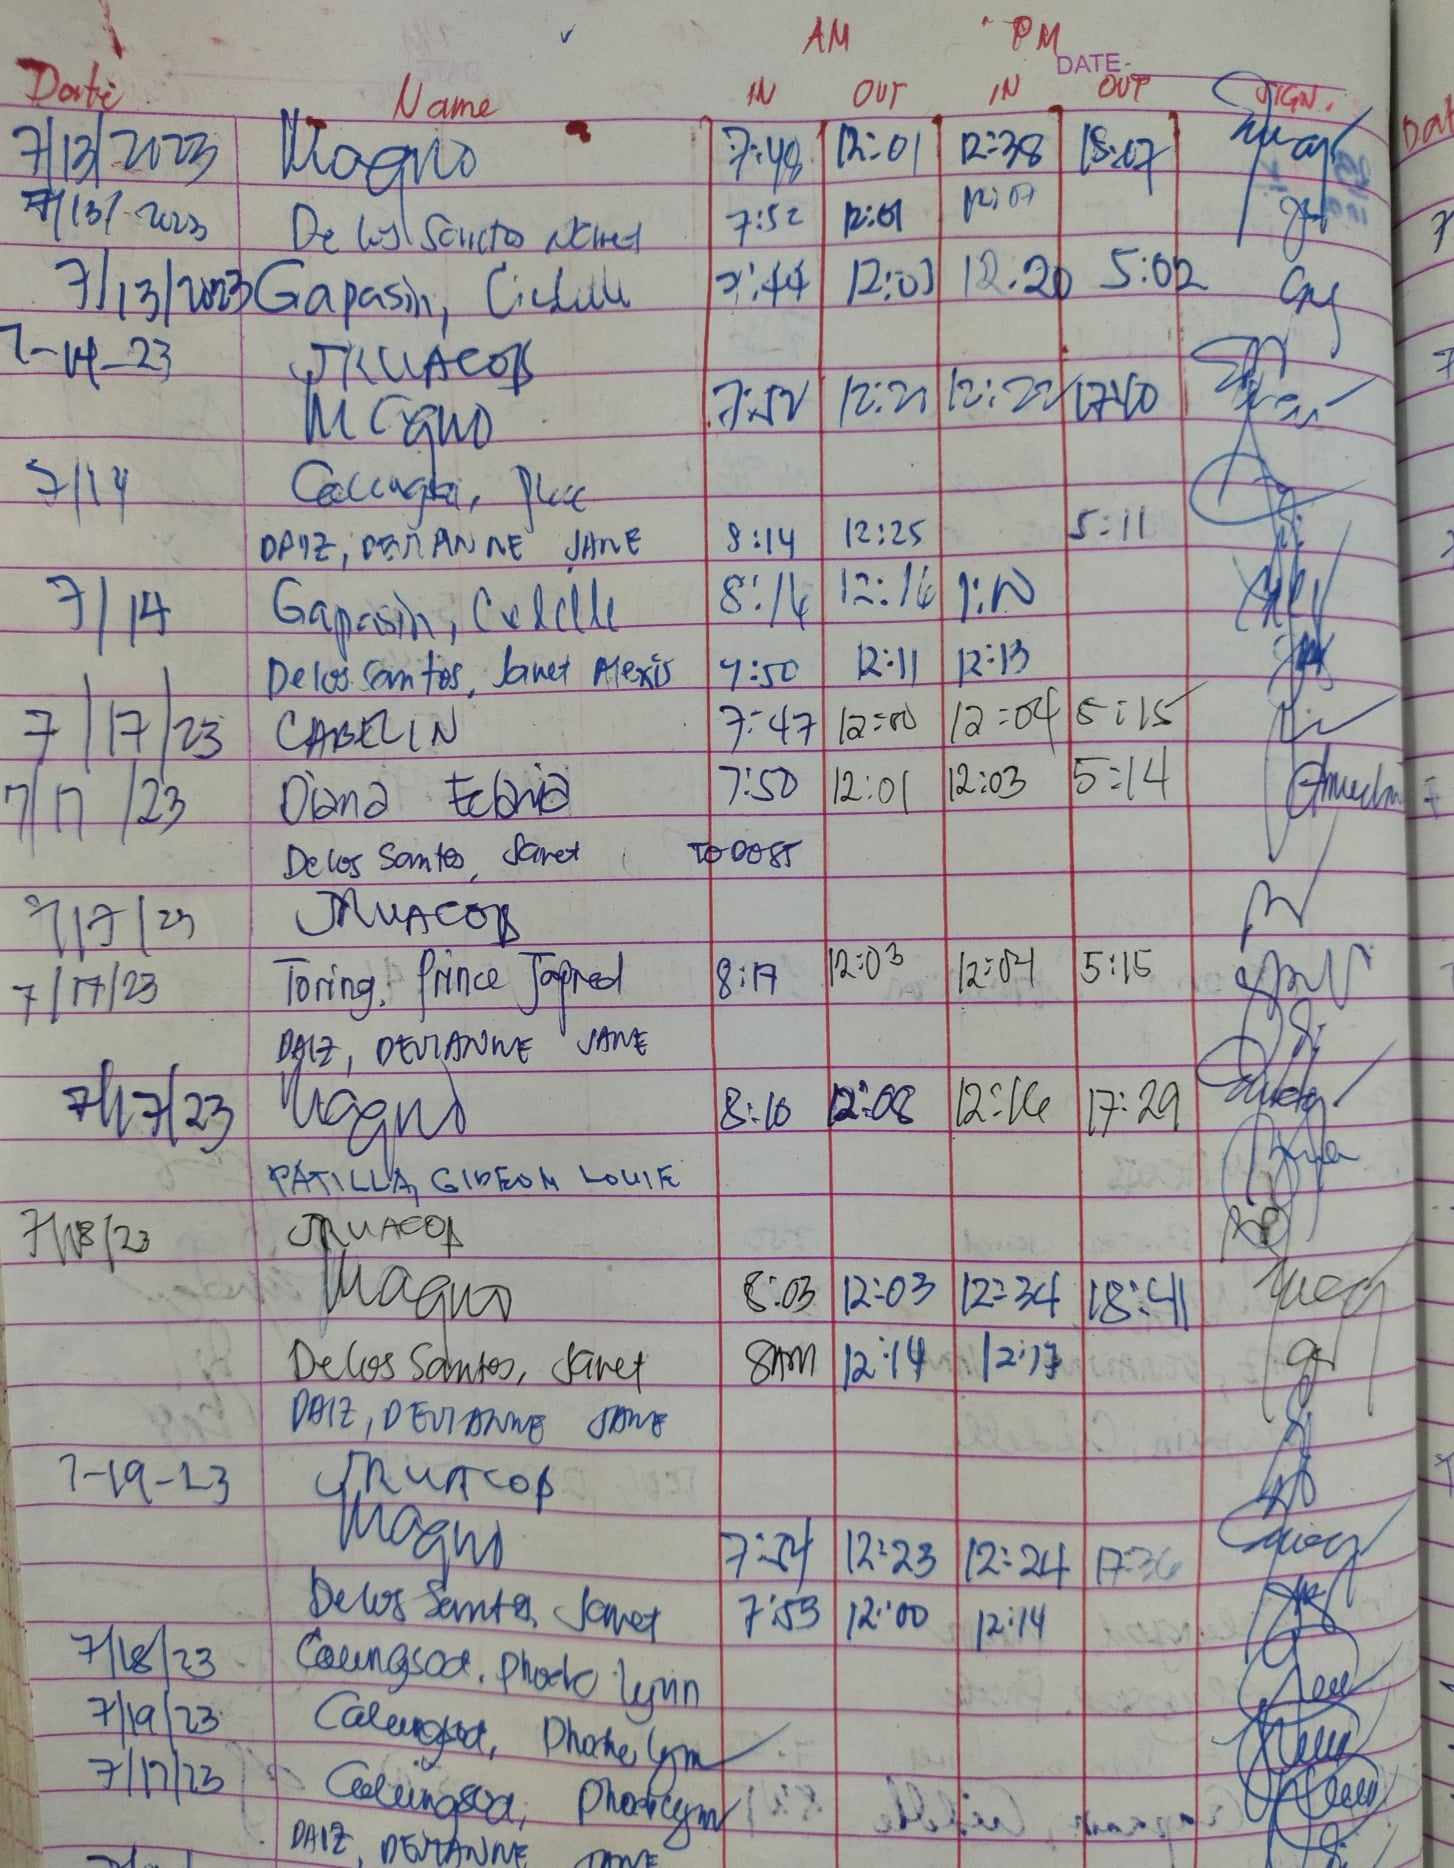 AM PM
DATE
Date Name IN OUT IN OUT SIGN.
7/13/2023 Magno 7:48 12:01 12:38 18:07
7/13/2023 De los Santos Janet 7:52 12:01 12:07
7/13/2023 Gapasin, Cidelle 7:44 12:03 12:20 5:02
7-14-23 JRUACOB
Magno 7:52 12:21 12:22 17:10
7/14
DAIZ, DEVIANNE JANE 8:14 12:25 5:11
7/14 Gapasin, Cidelle 8:16 12:16 1:10
Delos Santos, Janet Alexis 7:50 12:11 12:13
7/17/23 CABELIN 7:47 12:00 12:04 5:15
7/17/23 Diana 7:50 12:01 12:03 5:14
Delos Santos, Janet TO DOST
7/17/23 JRUACOB
7/17/23 Toring, Prince Japred 8:17 12:03 12:04 5:15
DAIZ, DEVIANNE JANE
7/17/23 Magno 8:10 12:08 12:16 17:29
PATILLA, GIDEON LOUIE
7/18/23 JRUACOB
Magno 8:03 12:03 12:34 18:41
Delos Santos, Janet 8AM 12:14 12:17
DAIZ, DEVIANNE JANE
7-19-23 JRUACOB
Magno 7:54 12:23 12:24 17:36
Delos Santos, Janet 7:53 12:00 12:14
7/18/23 Calungsod, Phoebe Lynn
7/19/23 Calungsod, Phoebe Lynn
7/17/23 Calungsod, Phoebe Lynn
DAIZ, DEVIANNE JANE